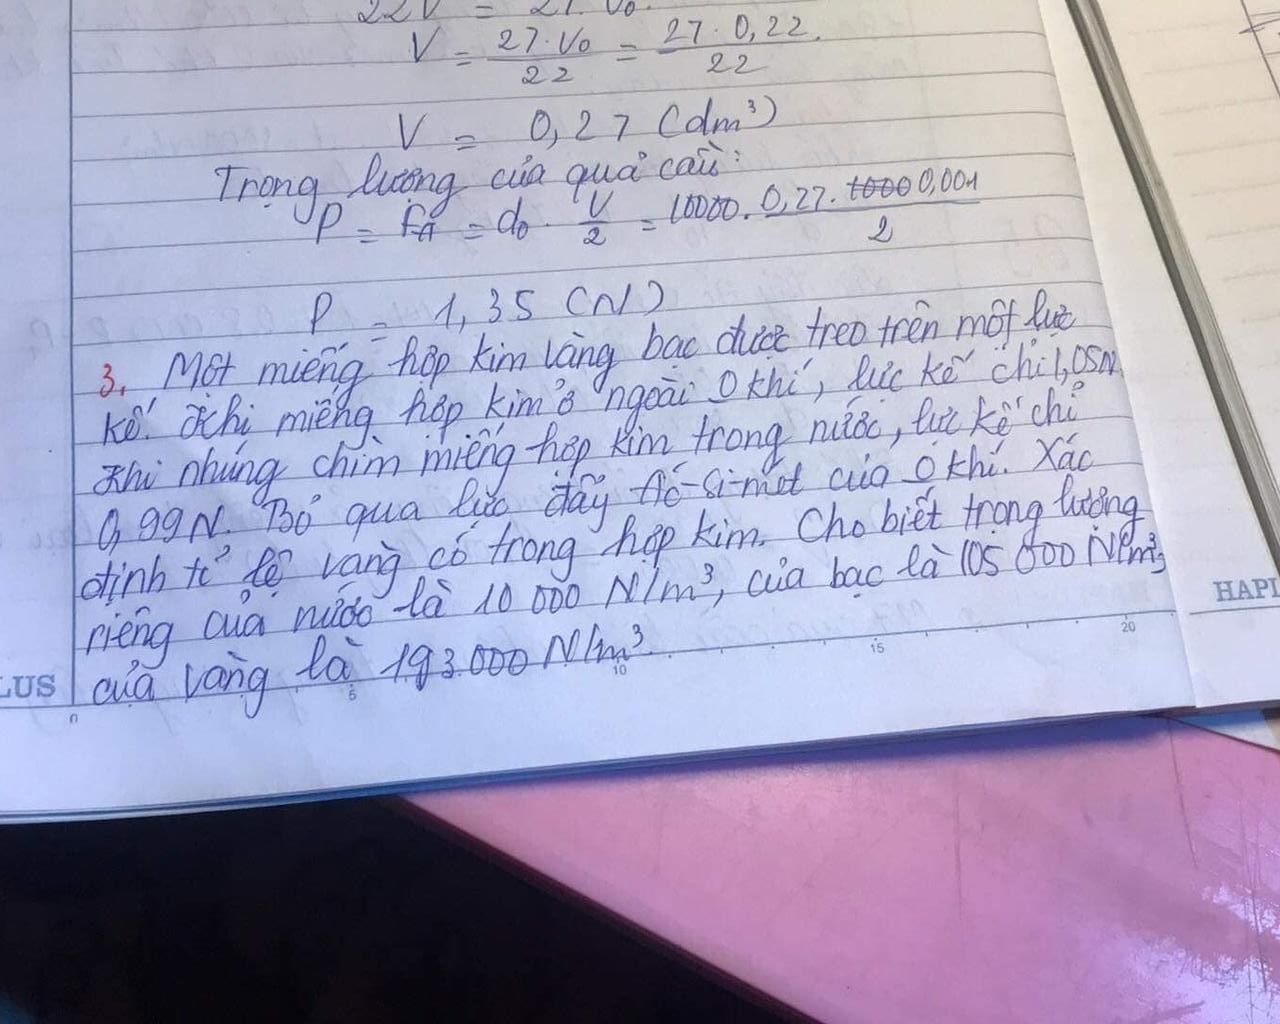 22V = 27. V₀.
V = 27.V₀/22 = 27.0,22/22
V = 0,27 (dm³)
Trọng lượng của quả cầu:
P = FA = d₀ . V/2 = 10000. 0,27. 1000 0,001/2
P = 1,35 (N)
3, Một miếng hợp kim vàng bạc được treo trên một lực
kế. Khi miếng hợp kim ở ngoài 0 khí, lực kế chỉ 1,05N
khi nhúng chìm miếng hợp kim trong nước, lực kế chỉ
0,99N. Bỏ qua lực đẩy Ác-si-mét của 0 khí. Xác
định tỉ lệ vàng có trong hợp kim. Cho biết trọng lượng
riêng của nước là 10 000 N/m³, của bạc là 105 000 N/m³,
của vàng là 193.000 N/m³
LUS
HAPL
0 5 10 15 20